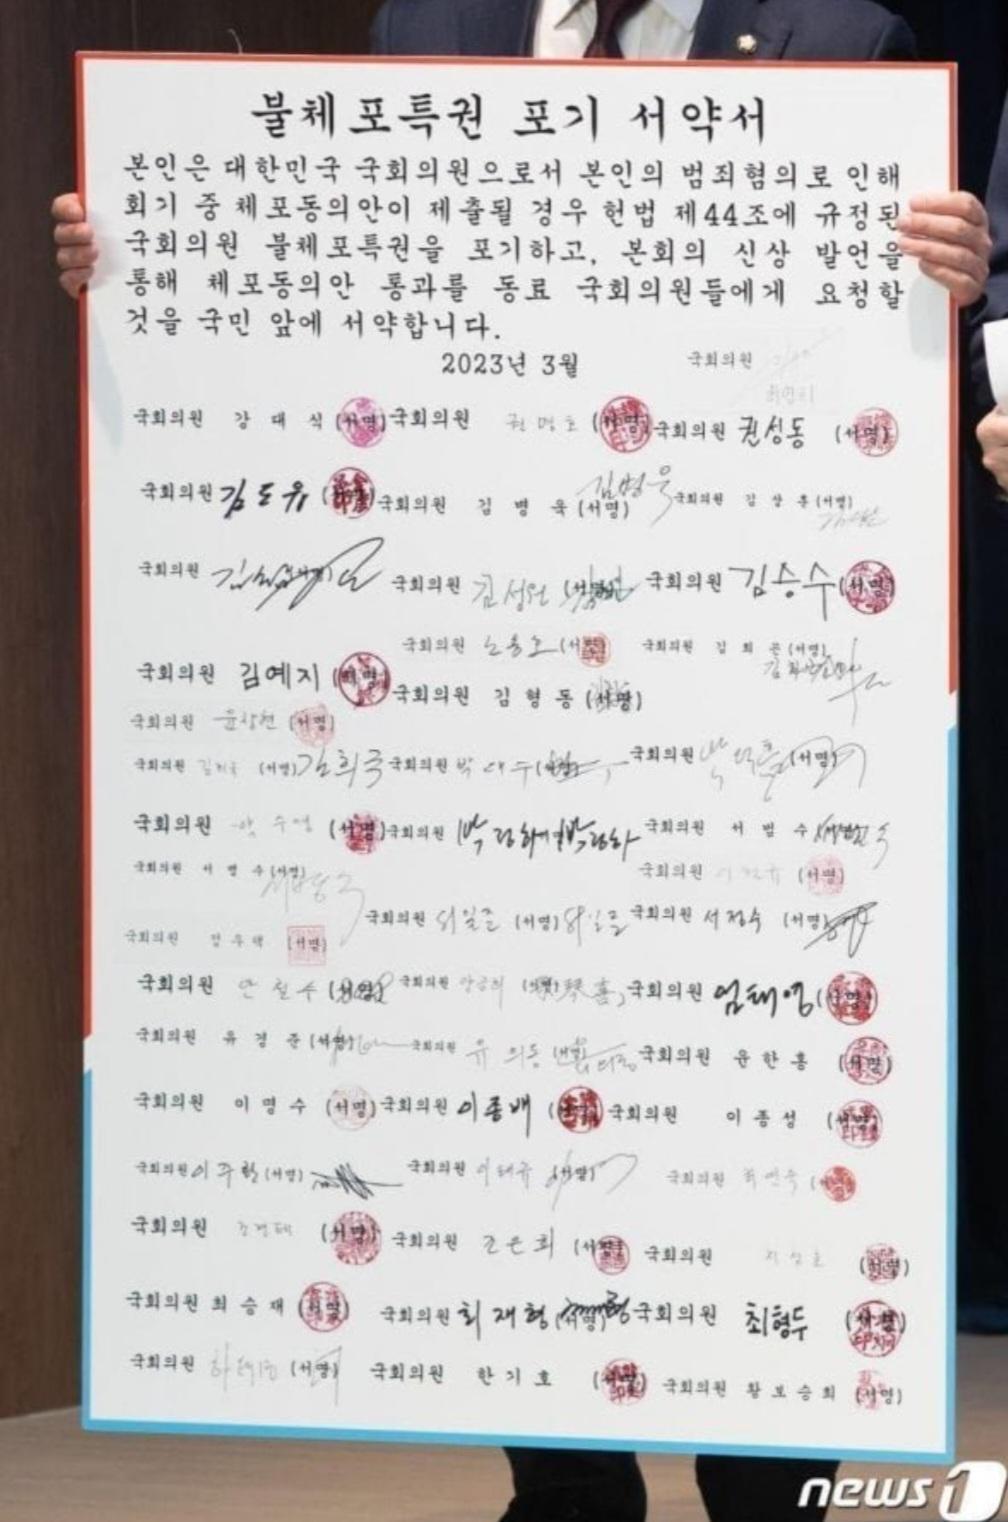 불체포특권 포기 서약서
본인은 대한민국 국회의원으로서 본인의 범죄혐의로 인해
회기 중 체포동의안이 제출될 경우 헌법 제44조에 규정된
국회의원 불체포특권을 포기하고, 본회의 신상 발언을
통해 체포동의안 통과를 동료 국회의원들에게 요청할
것을 국민 앞에 서약합니다.
2023년 3월 국회의원
국회의원 강대식 (서명) 국회의원 권명호 (서명) 국회의원 권성동 (서명)
국회의원 김도읍 (서명) 국회의원 김병욱 (서명) 김병욱 국회의원 김상훈 (서명)
국회의원 국회의원 김성원 (서명) 국회의원 김승수 (서명)
국회의원 노용호 (서명) 국회의원 김희곤 (서명)
국회의원 김예지 (서명) 국회의원 김형동 (서명)
국회의원 윤창현 (서명)
국회의원 (서명) 김희국 국회의원 박대수 (서명) 국회의원 박덕흠 (서명)
국회의원 박수영 (서명) 국회의원 박정하 (서명) 박정하 국회의원 서범수 서범수
국회의원 서병수 (서명) 서병수 국회의원 (서명)
국회의원 서일준 (서명) 서일준 국회의원 서정숙 (서명)
국회의원 정우택 (서명)
국회의원 안철수 (서명) 국회의원 양금희 (서명) 국회의원 엄태영 (서명)
국회의원 유경준 (서명) 국회의원 유의동 (서명) 국회의원 윤한홍 (서명)
국회의원 이명수 (서명) 국회의원 이종배 (서명) 국회의원 이종성 (서명)
국회의원 이주환 (서명) 국회의원 이태규 (서명) 국회의원 최연숙 (서명)
국회의원 조경태 (서명) 국회의원 조은희 (서명) 국회의원 지성호 (서명)
국회의원 최승재 (서명) 국회의원 최재형 (서명) 국회의원 최형두 (서명)
국회의원 하태경 (서명) 국회의원 한기호 (서명) 국회의원 황보승희 (서명)
news1